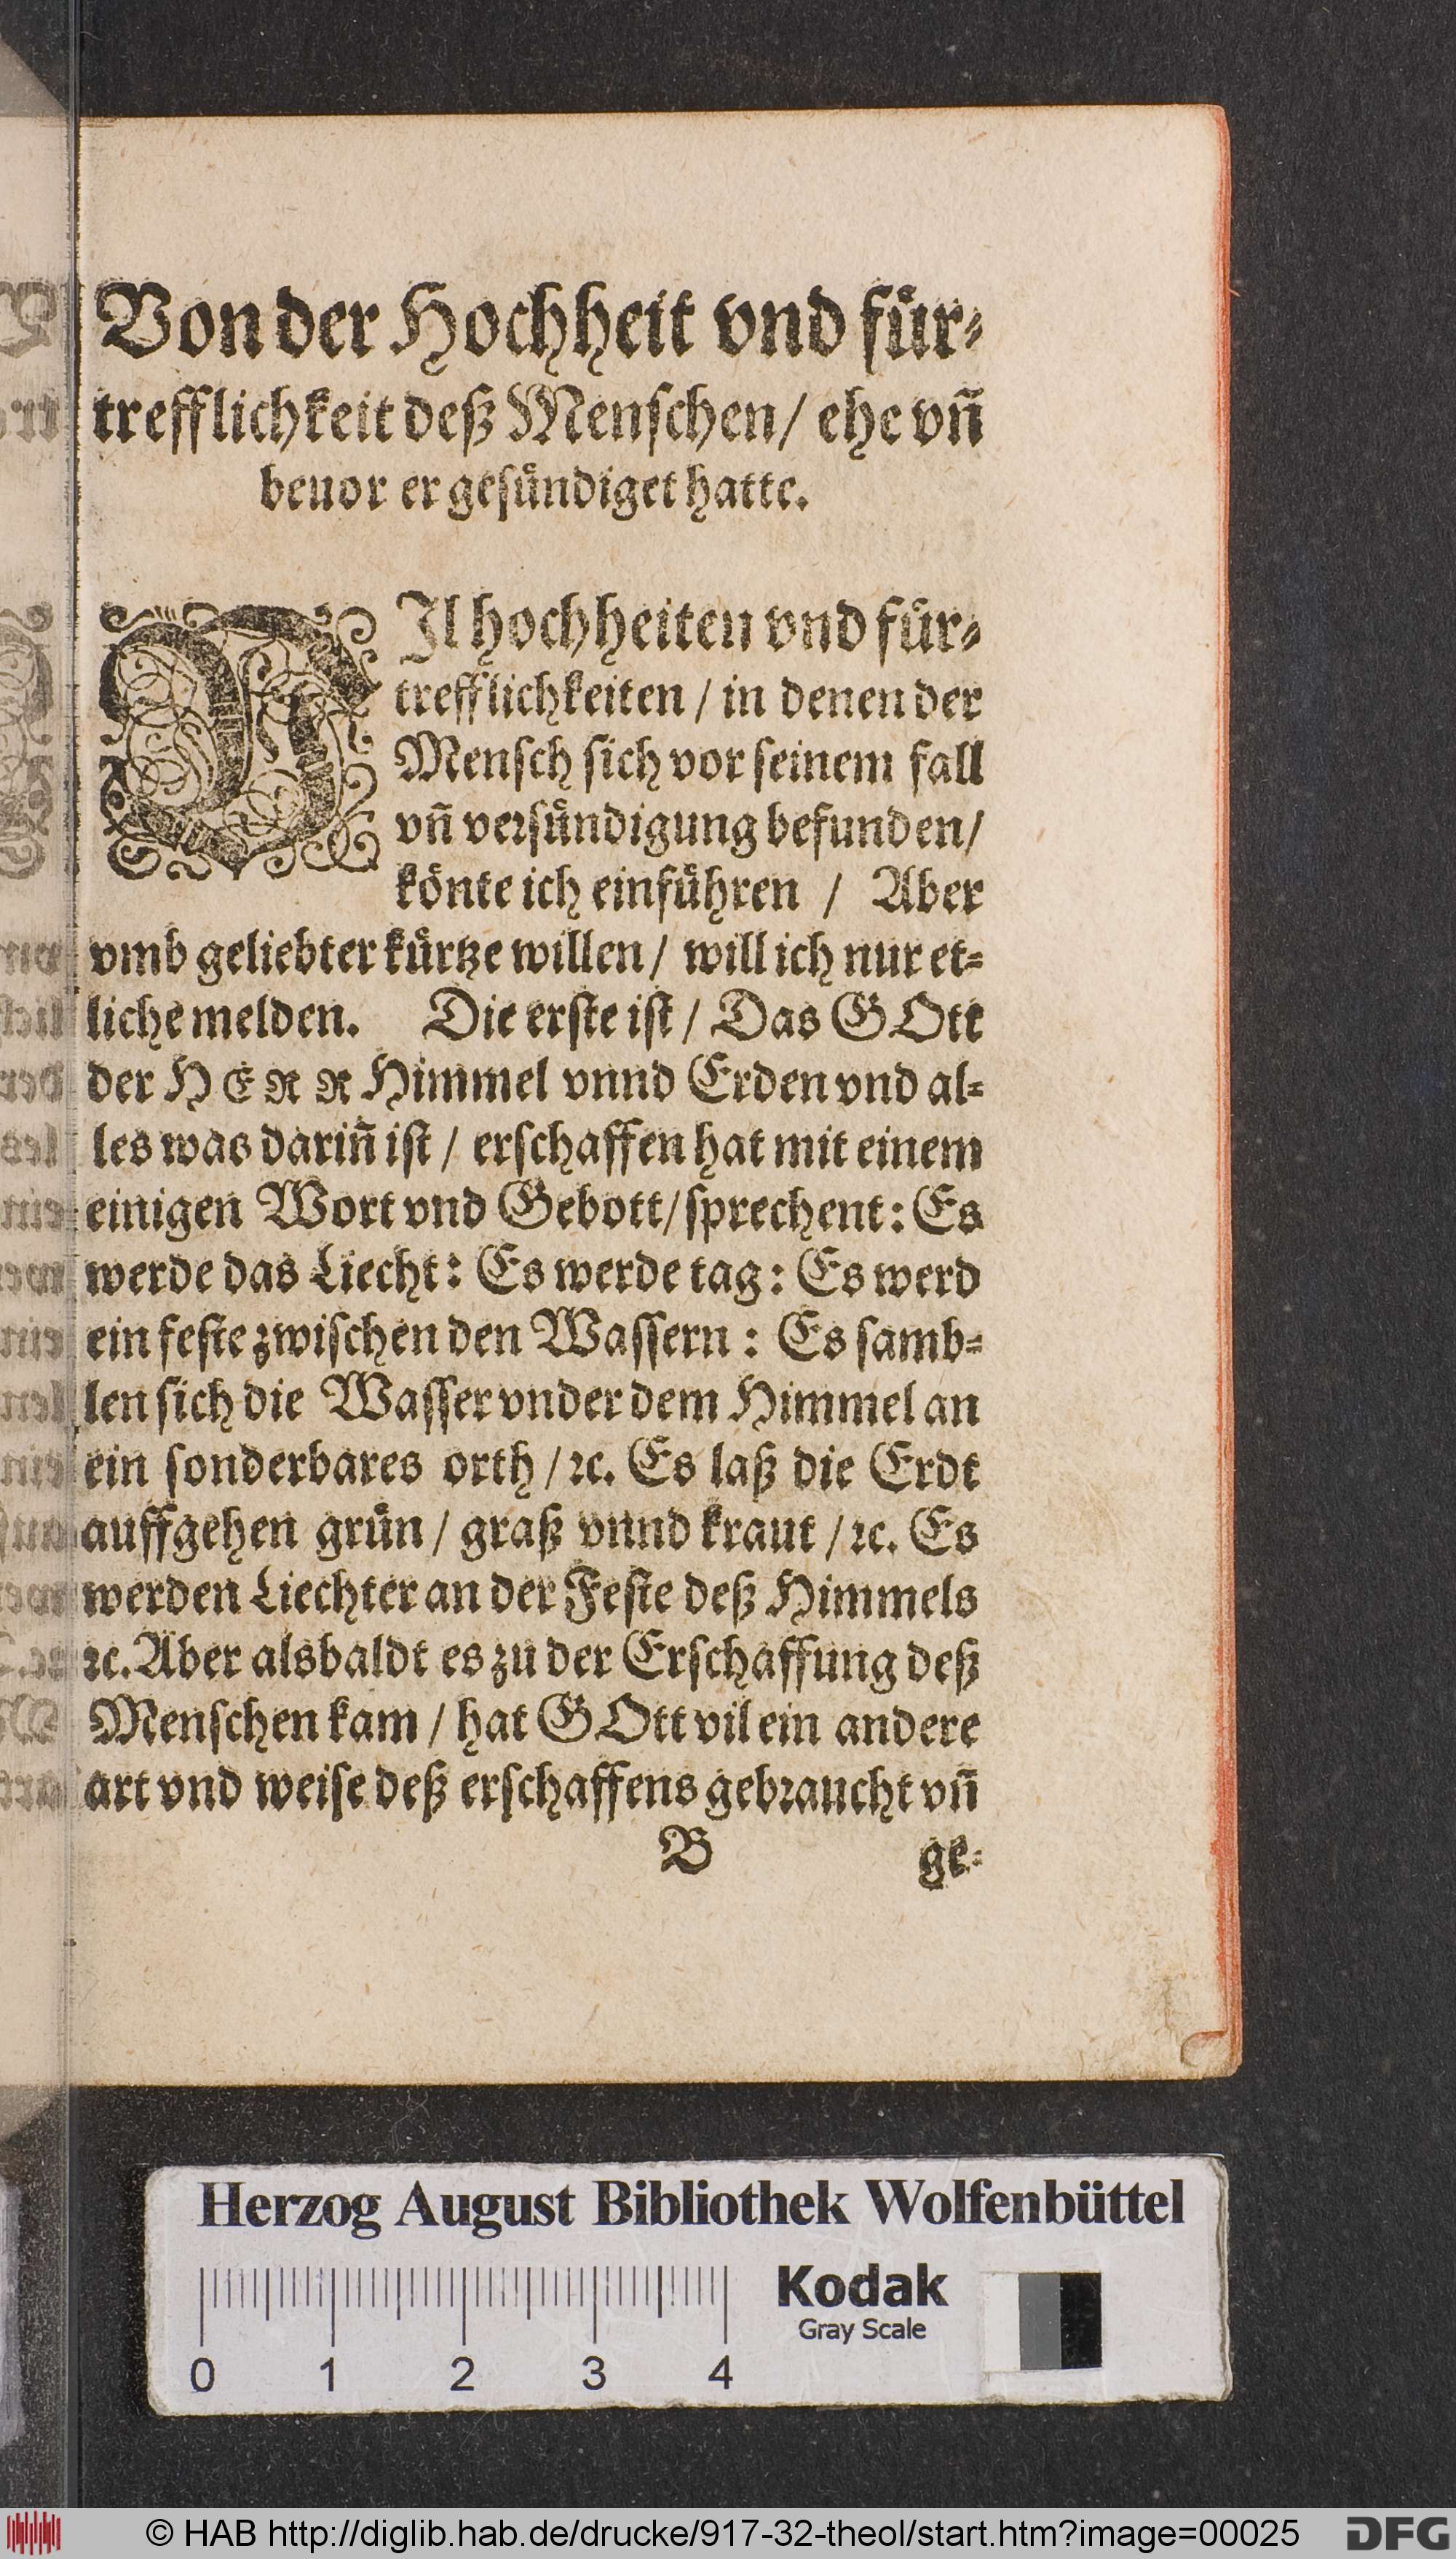 Von der Hochheit vnd für-
trefflichkeit deß Menschen/ ehe vñ
beuor er gesündiget hatte.
VIl hochheiten vnd für-
trefflichkeiten / in denen der
Mensch sich vor seinem fall
vñ versündigung befunden/
könte ich einführen / Aber
vmb geliebter kürtze willen/ will ich nur et-
liche melden. Die erste ist / Das GOtt
der HERR Himmel vnnd Erden vnd al-
les was dariñ ist / erschaffen hat mit einem
einigen Wort vnd Gebott/ sprechent: Es
werde das Liecht: Es werde tag: Es werd
ein feste zwischen den Wassern: Es samb-
len sich die Wasser vnder dem Himmel an
ein sonderbares orth / ꝛc. Es laß die Erdt
auffgehen grün / graß vnnd kraut / ꝛc. Es
werden Liechter an der Feste deß Himmels
ꝛc. Aber alsbaldt es zu der Erschaffung deß
Menschen kam / hat GOtt vil ein andere
art vnd weise deß erschaffens gebraucht vñ
B ge-
Herzog August Bibliothek Wolfenbüttel
Kodak
Gray Scale
0 1 2 3 4
© HAB http://diglib.hab.de/drucke/917-32-theol/start.htm?image=00025
DFG